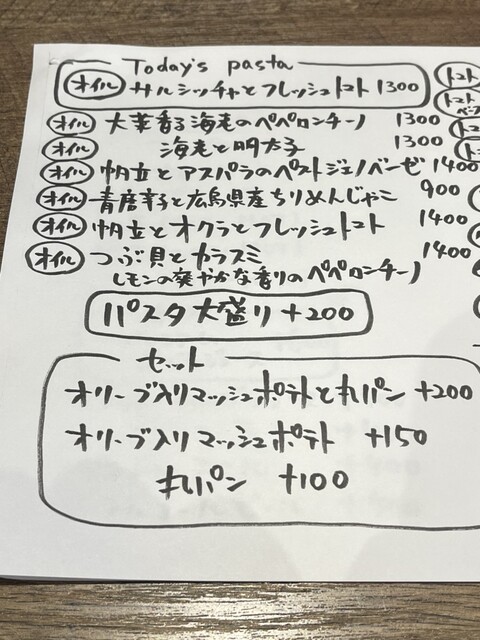 Today's pasta
オイル サルシッチャとフレッシュトマト 1300
オイル 大葉香る海老のペペロンチーノ 1300
オイル 海老と明太子 1300
オイル 帆立とアスパラのペストジェノベーゼ 1400
オイル 青唐辛子と広島県産ちりめんじゃこ 900
オイル 帆立とオクラとフレッシュトマト 1400
オイル つぶ貝とカラスミ 1400
レモンの爽やかな香りのペペロンチーノ
パスタ大盛り +200
セット
オリーブ入りマッシュポテトと丸パン +200
オリーブ入りマッシュポテト +150
丸パン +100
トマト
トマト